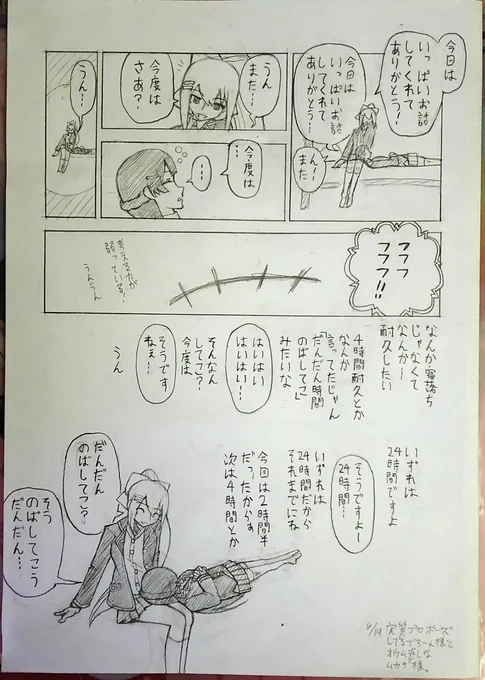 今日は
いっぱいお話
してくれて
ありがとう!
今日は
いっぱいお話
してくれて
ありがとう…
うん!
また
うん…
また…
今度は
さあ?…
…今度は
…
うん…
フフフ
フフフ!!
考える力が
弱っている!
うんうん
なんか寝落ち
じゃなくて
なんかー
耐久したい
4時間耐久とか
なんか
言ってたじゃん
「だんだん時間
のばしてこ」
みたいな
はいはい
はいはい…
そんなん
してこ?
今度は
そうです
ねぇ…
うん
いずれは
24時間ですよ
そうですよー
24時間…
いずれは
24時間だから
それまでにね
今回は2時間半
だったからさ
次は4時間とか
だんだん
のばしてこ?
そう
のばしてこう
だんだん…
6/19 実質プロポーズ
してるでろーん様と
オウム返しな
ムカデ様。